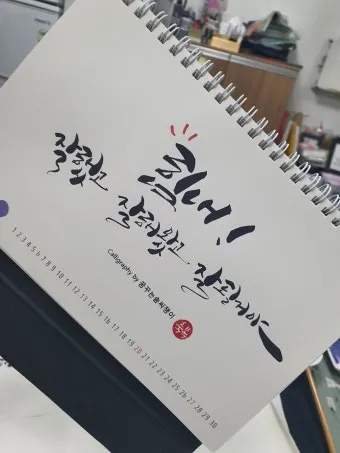 힘내!
잘했고 잘해왔고 잘될거야
Calligraphy by 꿈꾸는솜씨쟁이
1 2 3 4 5 6 7 8 9 10 11 12 13 14 15 16 17 18 19 20 21 22 23 24 25 26 27 28 29 30